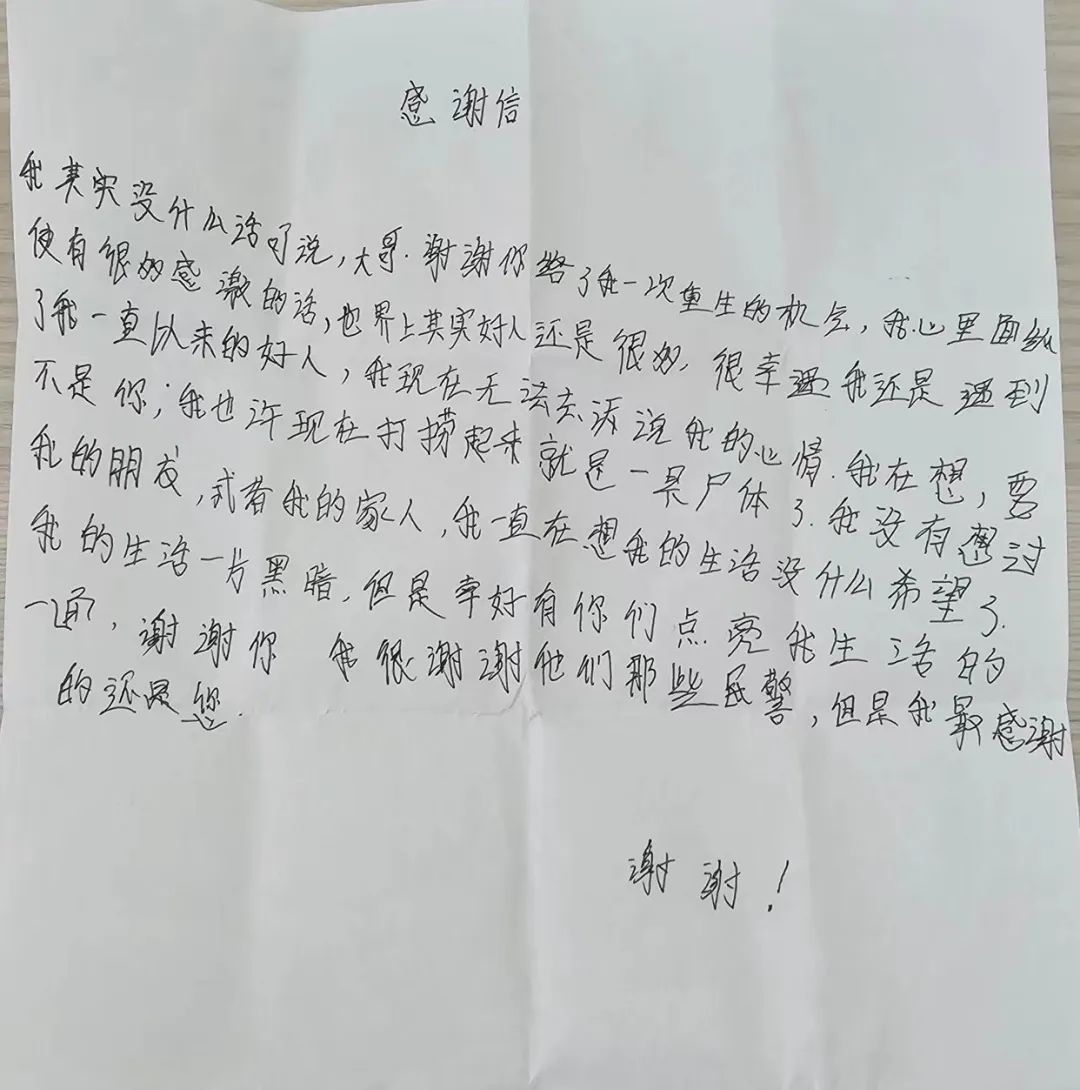 感谢信
我其实没什么话可说，大哥.谢谢你给了我一次重生的机会，我心里面纵
使有很多感激的话，世界上其实好人还是很多.很幸遇我还是遇到
了我一直以来的好人，我现在无法去诉说我的心情.我在想，要
不是你；我也许现在打捞起来就是一具尸体了.我没有想过
我的朋友，或者我的家人，我一直在想我的生活没什么希望了.
我的生活一片黑暗，但是幸好有你们点亮我生活的
一面，谢谢你 我很谢谢他们那些民警，但是我最感谢
的还是您.
谢谢！